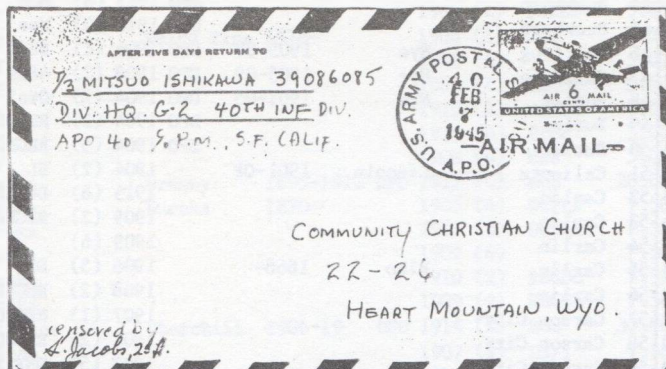 AFTER FIVE DAYS RETURN TO
T/3 MITSUO ISHIKAWA 39086085
DIV. HQ. G-2 40TH INF DIV.
APO 40 % P.M., S.F. CALIF.
U.S. ARMY POSTAL S
40
FEB
7
1945
A.P.O.
AIR 6 MAIL
CENTS
UNITED STATES OF AMERICA
AIR MAIL
COMMUNITY CHRISTIAN CHURCH
22-26
HEART MOUNTAIN, WYO.
censored by
S. Jacobs, 2d Lt.
Carlin
1904 (2)
Carson City